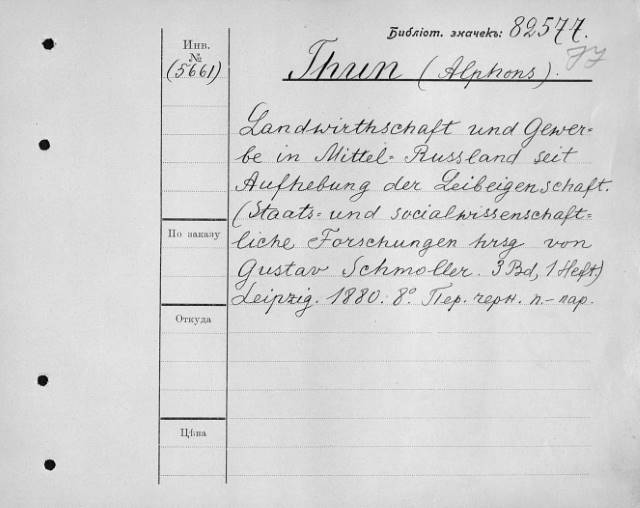 Библіот. значекъ: 82577.
JJ
Инв.
№
(5661)
Thun (Alphons).
Landwirthschaft und Gewer=
be in Mittel=Russland seit
Aufhebung der Leibeigenschaft.
(Staats= und socialwissenschaft=
liche Forschungen hrsg von
Gustav Schmoller. 3 Bd, 1 Heft)
Leipzig. 1880. 8°. Пер. черн. п-пар.
По заказу
Откуда
Цѣна